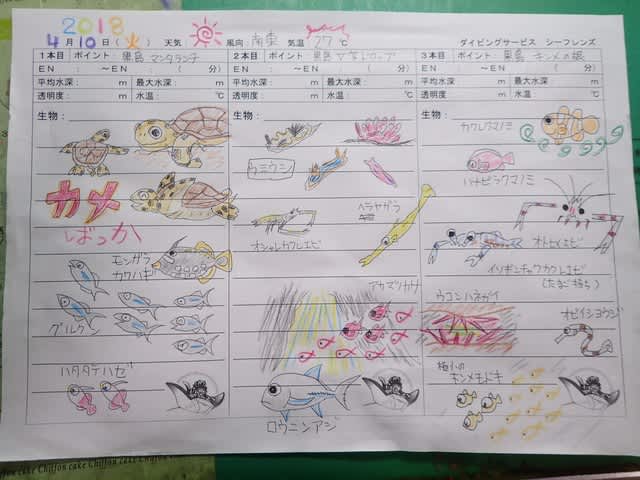 2018
4月10日（火） 天気： 風向：南東 気温 27℃ ダイビングサービス シーフレンズ
1本目 ポイント：黒島 マンタランチ
2本目 ポイント：黒島 V字ドロップ
3本目 ポイント：黒島 キンメの根
EN ： ～EN ： （ 分）
EN ： ～EN ： （ 分）
EN ： ～EN ： （ 分）
平均水深： m 最大水深： m
平均水深： m 最大水深： m
平均水深： m 最大水深： m
透明度： m 水温： ℃
透明度： m 水温： ℃
透明度： m 水温： ℃
生物：
カメ
ばっか
モンガラ
カワハギ
グルクン
ハタタテハゼ
生物：
ウミウシ
ヘラヤガラ
オシャレカクレエビ
アカマツカサ
ロウニンアジ
生物：
カクレクマノミ
ハナビラクマノミ
オトヒメエビ
イソギンチャクカクレエビ
（たまご持ち）
ウコンハネガイ
オビイシヨウジ
極小の
キンメモドキ
Chiffon cake Chiffon cake